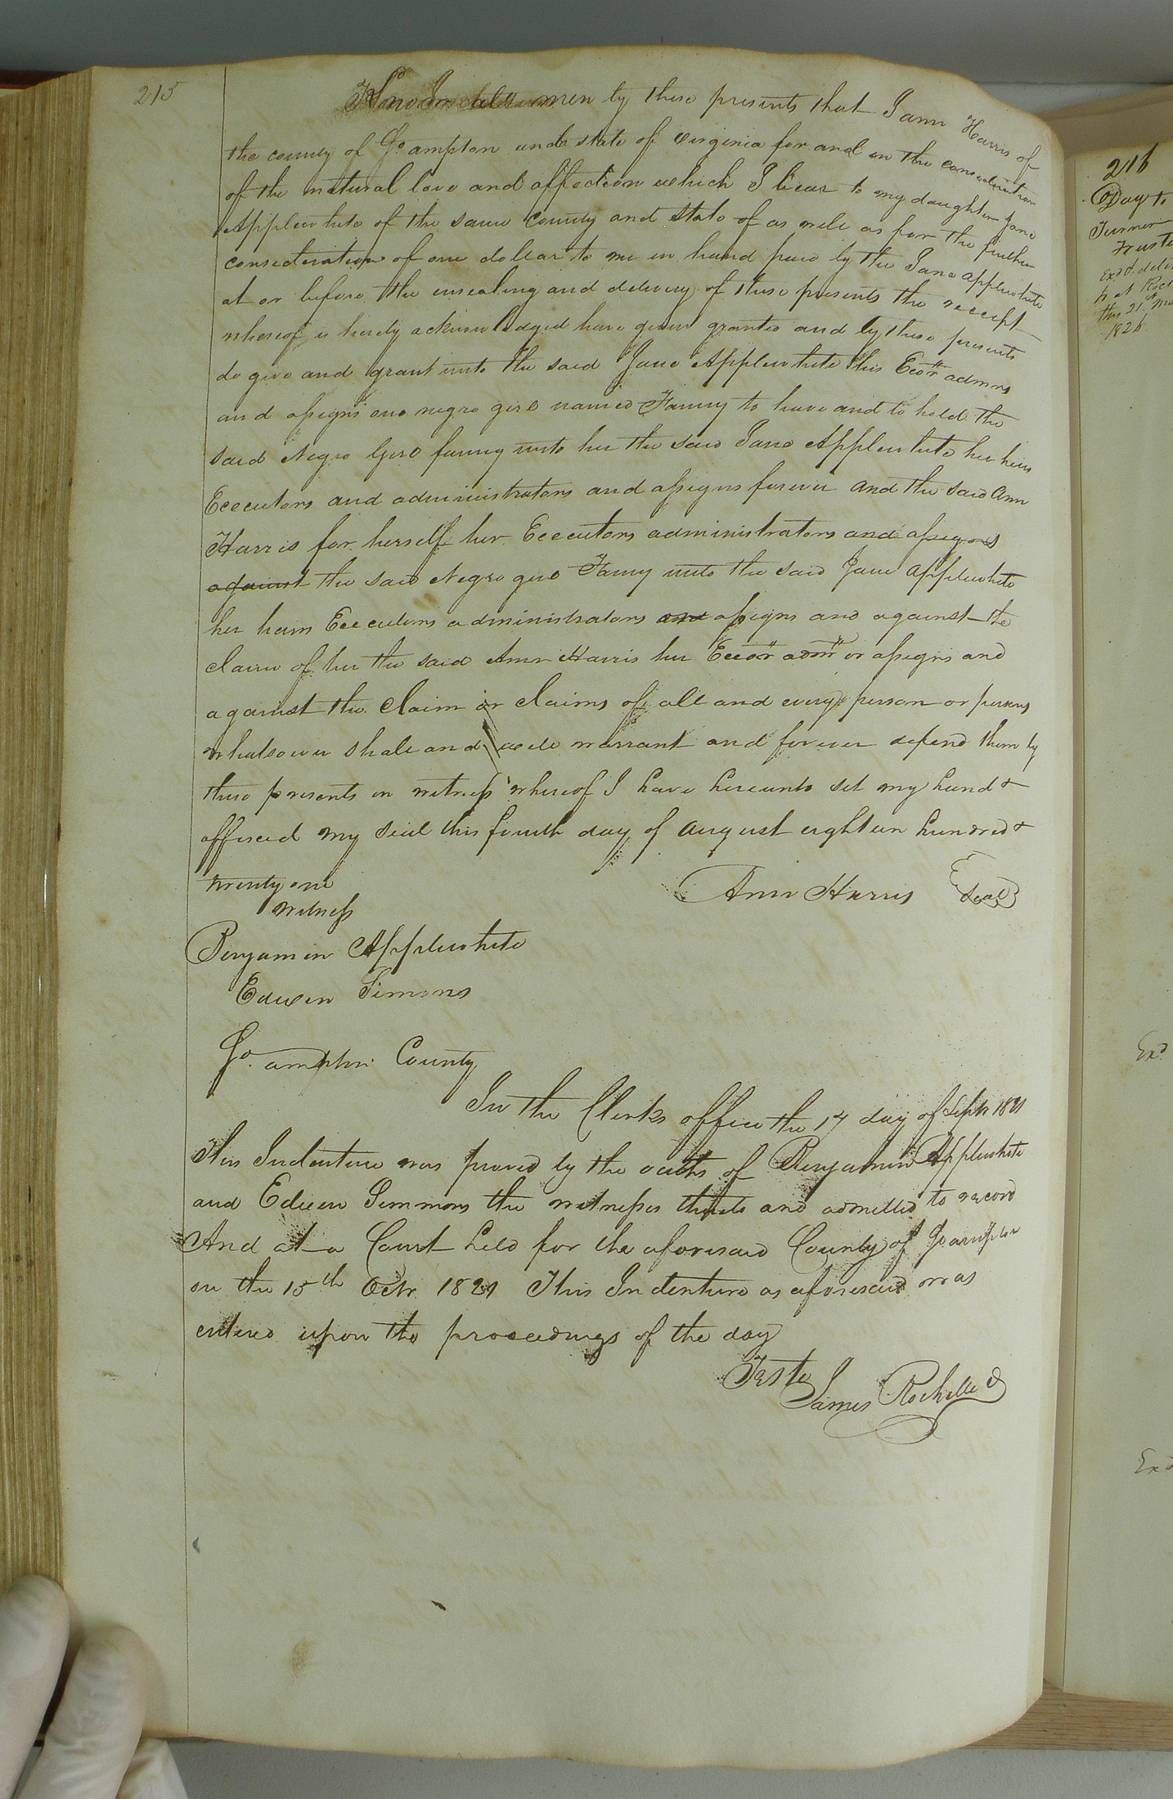 215
Know all men by these presents that I ann Harris of
the county of So ampton and state of virginia for and in the consideration
of the natural love and affection which I bear to my daughter Jane
Applewhite of the same county and state of as well as for the further
consideration of one dollar to me in hand paid by the Jane applewhite
at or before the ensealing and delivery of these presents the receipt
whereof is hereby acknowledged have given granted and by these presents
do give and grant unto the said Jane Applewhite his Exors admrs
and assigns one negro girl named Fanny to have and to hold the
said Negro Girl fanny unto her the said Jane Applewhite her heirs
Executors and administrators and assigns forever and the said Ann
Harris for herself her Executors administrators and assigns
against the said Negro girl Fanny unto the said Jane applewhite
her heirs Executors administrators and assigns and against the
claim of her the said Ann Harris her Exors admrs or assigns and
against the claim or claims of all and every person or persons
whatsoever shall and will warrant and forever defend them by
these presents in witness whereof I have hereunto set my hand &
affixed my seal this fourth day of august eighteen hundred &
twenty one
Ann Harris Seal
witness
Benjamin Applewhite
Edwin Simmons
So. ampton County
In the Clerks office the 17 day of Septr 1821
This Indenture was proved by the oaths of Benjamin Applewhite
and Edwin Simmons the witnesses thereto and admitted to record
And at a Court held for the aforesaid County of So ampton
on the 15th Octr. 1821 This Indenture as aforesaid was
entered upon the proceedings of the day
Teste
James Rochelle
216
Day to
Turner
Truste
at
this 21st
1826
Exd
Exd